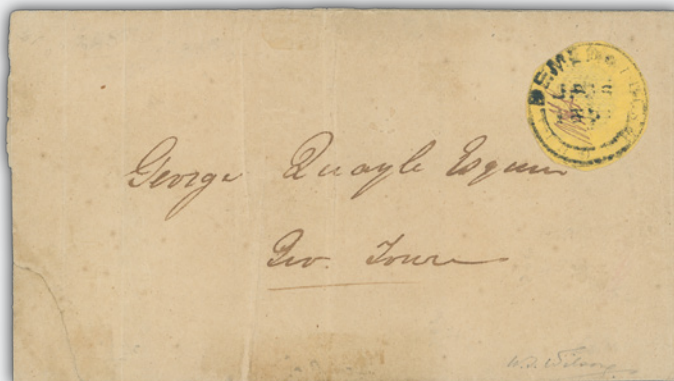 DEMERARA
George Quayle Esquire
Geo. Town
W.D. Wilson